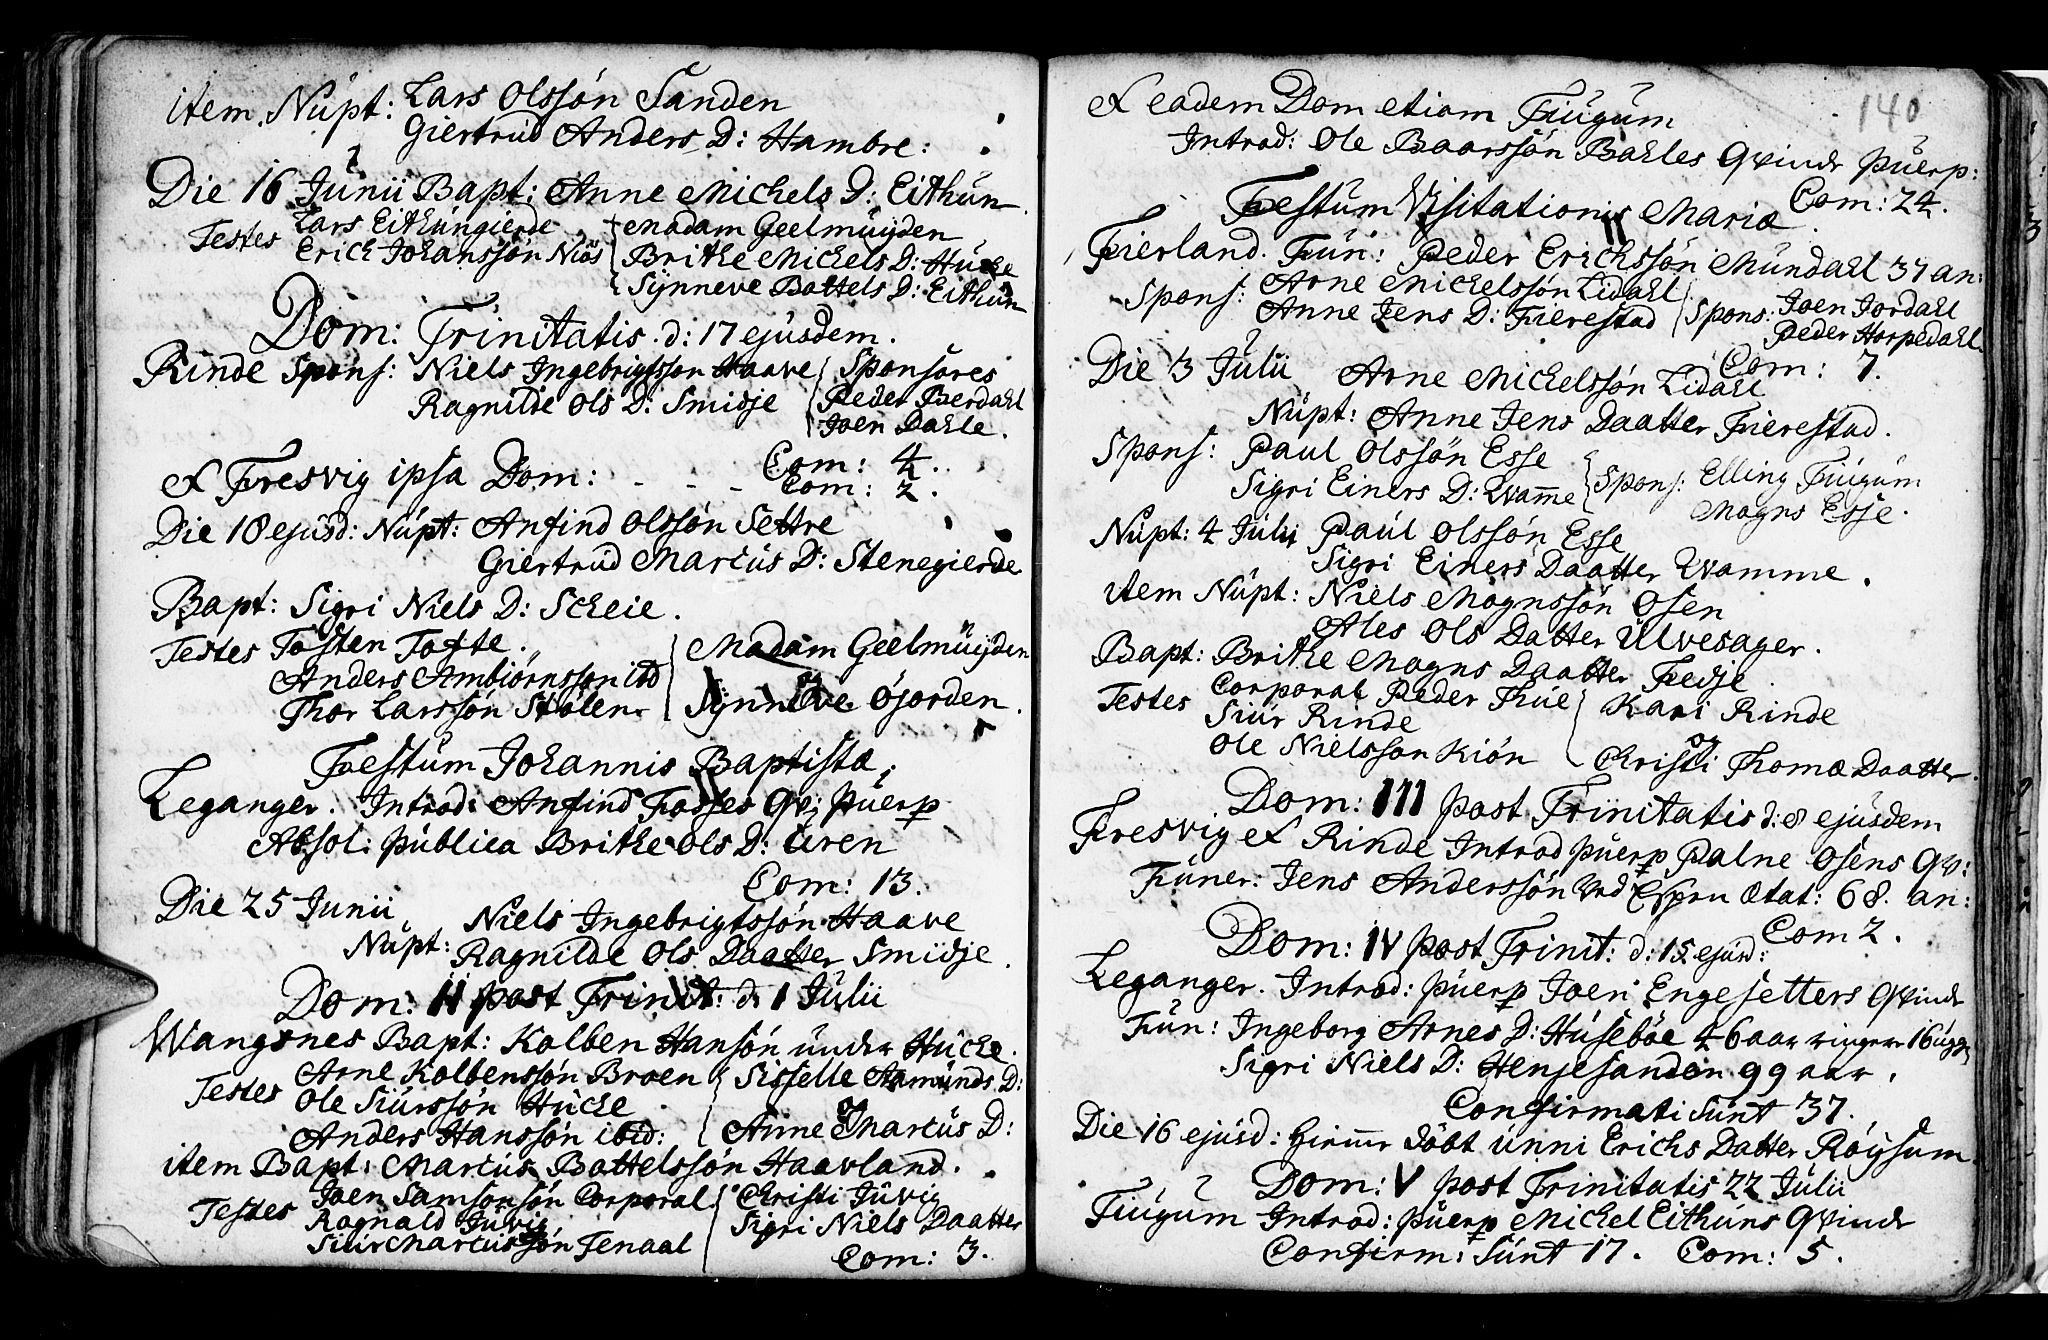 item Nupt: Lars Olssön Sanden
Giertrud Anders D: Hambre:
Die 16 Junii Bapt: Anne Michels D: Eithun
Testes Lars Eithungierde { Madam Geelmuijden
Erich Johanssön Niøs { Brithe Michels D: Hucke
{ Synneve Battels D: Eithun
Dom: Trinitatis d: 17 ejusdem.
Rinde Spons: Niels Ingebrigtsson Haave { Sponsores
Ragnilde Ols D: Smidje { Peder Berdahl
{ Joen Dahle.
Com: 4.
et Fresvig ipsa Dom: - - - Com: 2.
Die 18 ejusd: Nupt: Anfind Olssön Settre
Giertrud Marcus D: Stenegierde
Bapt: Sigri Niels D: Scheie.
Testes Tosten Tofte. { Madam Geelmuijden
Anders Ambiörnsson ibd
Thor Larssön Stølen { og Synneve Øjorden.
Festum Johannis Baptistæ
Leganger. Introd: Anfind Fosses Qv: puerp
Absol: publica Brithe Ols D: Uren
Com: 13.
Die 25 Junii
Niels Ingebrigtssön Haave
Nupt: Ragnilde Ols Daatter Smidje.
Dom: II post Trinit: d: 1 Julii
Wangsnes Bapt: Kolben Hansön under Hucke.
Testes Arne Kolbenssön Broen { Sisselle Aamunds D:
Ole Siurssön Hucke
Anders Hanssön ibid: { og Anne Marcus D:
item Bapt: Marcus Battelssön Haavland.
Testes Joen Samsonssön Corporal { Christi Juvig
Ragnald Juvig { Sigri Niels Daatter
Siur Marcussön Fenaal
Com: 3.
140
et eadem Dom etiam Fiugum
Introd: Ole Baarssön Bahles Qvinde puerp:
Com: 24.
Festum Visitationis Mariæ
Fierland. Fun: Peder Erichssön Mundahl 37 an:
Spons: Arne Michelssön Lidahl { Spons: Joen Jordahl
Anne Jens D: Fierestad { Peder Horpedahl
Com: 7.
Die 3 Julii Arne Michelssön Lidahl
Nupt: Anne Jens Daatter Fierestad.
Spons: Paul Olssön Esse { Spons: Elling Fiugum
Sigri Einers D: Wame { Mogns Esse.
Nupt: 4 Julii Paul Olssön Esse
Sigri Einers Daatter Wamme.
item Nupt: Niels Mognssön Osen
Ales Ols Datter Ulvesager.
Bapt: Brithe Mogns Daatter Fedje.
Testes Corporal Peder Thue { Kari Rinde
Siur Rinde
Ole Nielsson Kiön { og Christi Thomæ Daatter.
Dom: III post Trinitatis d: 8 ejusdem
Fresvig et Rinde Introd puerp Palne Osens Qv:
Funer: Jens Anderssön ved Espen Ætat: 68. an:
Com 2.
Dom: IV post Trinit: d: 15 ejusd:
Leganger. Introd: puerp Joen Engesetters Qvinde
Fun: Ingeborg Arnes D: Huseböe 46 aar ringere 16 ugger
Sigri Niels D: Henjesanden 99 aar.
Confirmati sunt 37.
Die 16 ejusd: döbt Unni Erichs Datter Röysum.
Dom: V post Trinitatis 22 Julii
Fiugum Introd: puerp Michel Eithuns Qvinde
Confirm: sunt 17. Com: 5.